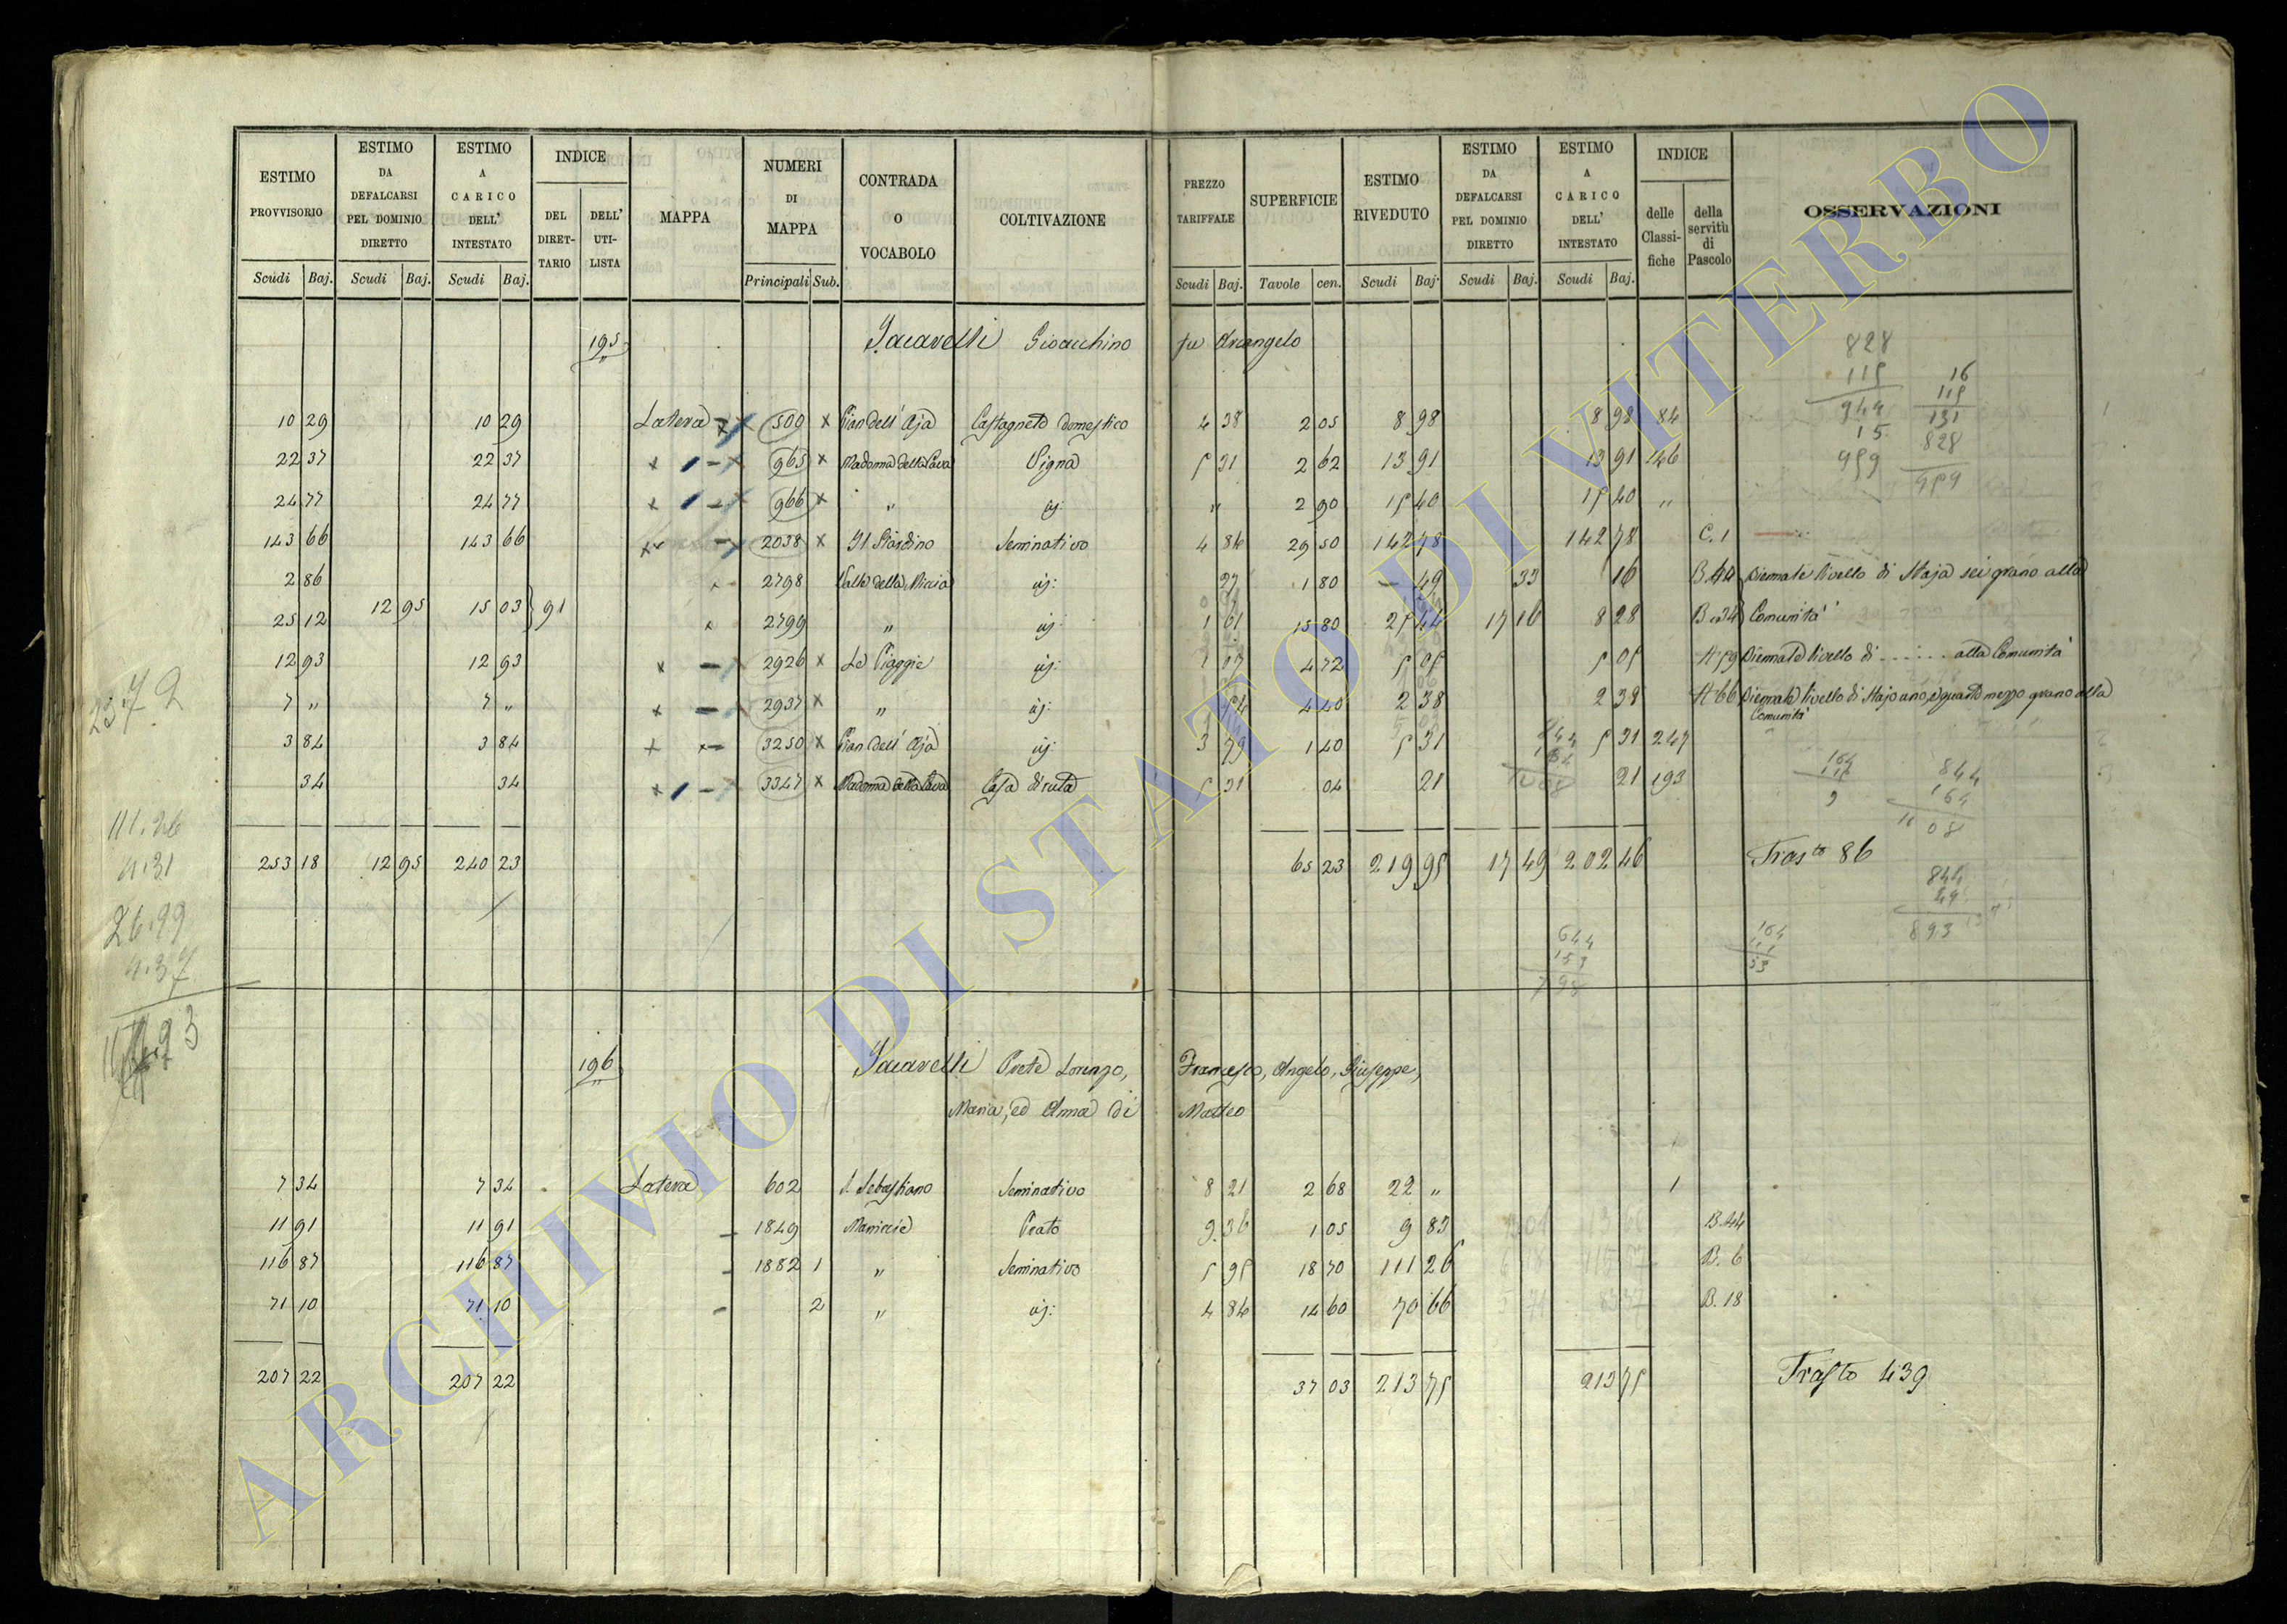 ESTIMO PROVVISORIO Scudi Baj.
ESTIMO DA DEFALCARSI PEL DOMINIO DIRETTO Scudi Baj.
ESTIMO A CARICO DELL' INTESTATO Scudi Baj.
INDICE DEL DIRETTARIO DELL' UTILISTA
MAPPA
NUMERI DI MAPPA Principali Sub.
CONTRADA O VOCABOLO
COLTIVAZIONE
PREZZO TARIFFALE Scudi Baj.
SUPERFICIE Tavole cen.
ESTIMO RIVEDUTO Scudi Baj.
ESTIMO DA DEFALCARSI PEL DOMINIO DIRETTO Scudi Baj.
ESTIMO A CARICO DELL' INTESTATO Scudi Baj.
INDICE delle Classifiche della servitù di Pascolo
OSSERVAZIONI
195 Jacarelli Gioacchino fu Arcangelo
10 29 10 29 Latera 509 x Pian dell' Aja Castagneto domestico 4 38 2 05 8 98 8 98 84
22 37 22 37 x 965 x Madonna della Cava Vigna 5 31 2 62 13 91 13 91 146
24 77 24 77 x 966 x " id: " 2 90 15 40 15 40 "
143 66 143 66 2038 x Il Giardino Seminativo 4 84 29 50 142 78 142 78 C. 1
2 86 2798 Valle della id: 27 1 80 — 49 33 16 B. 44 Biennale livello di Staja sei grano alla
25 12 12 95 15 03 91 2799 " id: 1 61 15 80 25 44 17 16 8 28 B. 34 Comunità
12 93 12 93 x 2926 x Le Piaggie id: 1 07 4 72 5 05 5 05 A 59 Biennale livello di ...... alla Comunità
7 " 7 " x 2937 x " id: 54 4 40 2 38 2 38 A 66 Biennale livello di Stajo uno, e quarto mezzo grano alla
Comunità
3 84 3 84 x 3250 x Pian dell' Aja id: 3 79 1 40 5 31 5 31 247
34 34 x 3347 x Madonna della Cava Casa diruta 5 31 04 21 21 193
253 18 12 95 240 23 65 23 219 95 17 49 202 46 Trasto 86
196 Jacarelli Prete Lorenzo, Francesco, Angelo, Giuseppe,
Maria, ed Anna di Matteo
7 34 7 34 Latera 602 S. Sebastiano Seminativo 8 21 2 68 22 " 1
11 91 11 91 1849 Prato 9 36 1 05 9 83 B. 44
116 87 116 87 1882 1 " Seminativo 5 95 18 70 111 26 B. 6
71 10 71 10 2 " id: 4 84 14 60 70 66 B. 18
207 22 207 22 37 03 213 75 213 75 Trasto 439
828
115
944
15
959
16
115
131
828
959
844
164
1008
844
49
893
644
153
798
111.26
4.31
26.99
4.37
ARCHIVIO DI STATO DI VITERBO